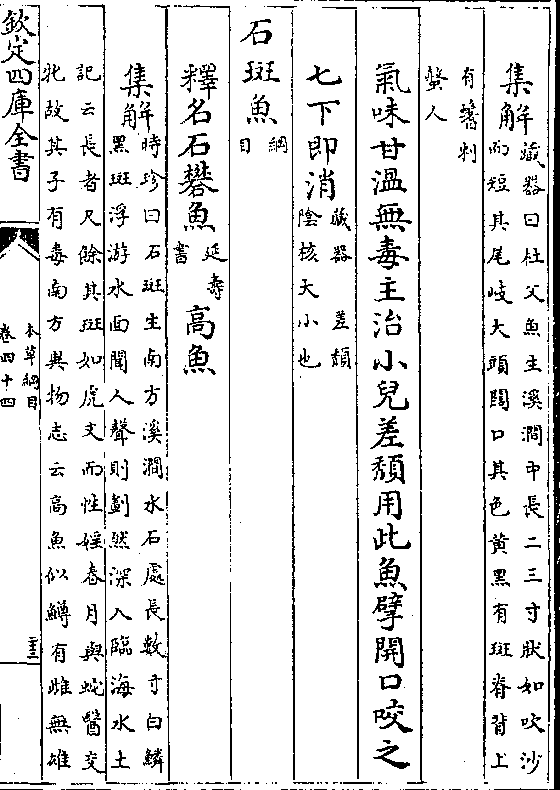 集解藏器曰杜父魚生溪澗中長二三寸狀如吹沙
而短其尾岐大頭闊口其色黃黑有斑脊背上
有鬐刺
螫人
氣味甘溫無毒主治小兒差頹用此魚擘開口咬之
七下即消藏器　差頹
陰核大小也
石斑魚綱
目
釋名石礬魚延壽
書高魚
集解時珍曰石斑生南方溪澗水石處長數寸白鱗
黑斑浮游水面聞人聲則劃然深入臨海水土
記云長者尺餘其斑如虎文而性婬春月與蛇醫交
牝故其子有毒南方異物志云高魚似鱒有雌無雄
欽定四庫全書
本草綱目
卷四十四